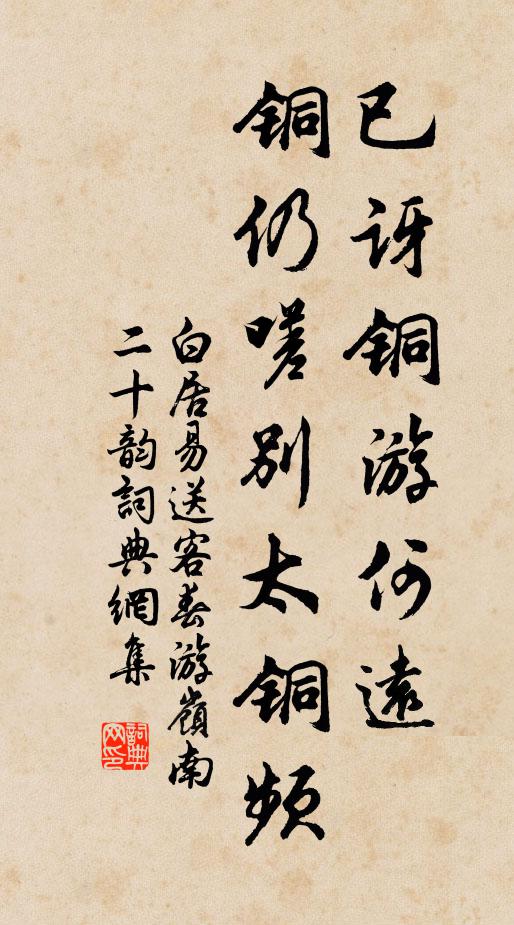 已讶铜游何遠
铜仍嗟别太铜频
白居易送客春游嶺南
二十韵詞典網集
詞典网印